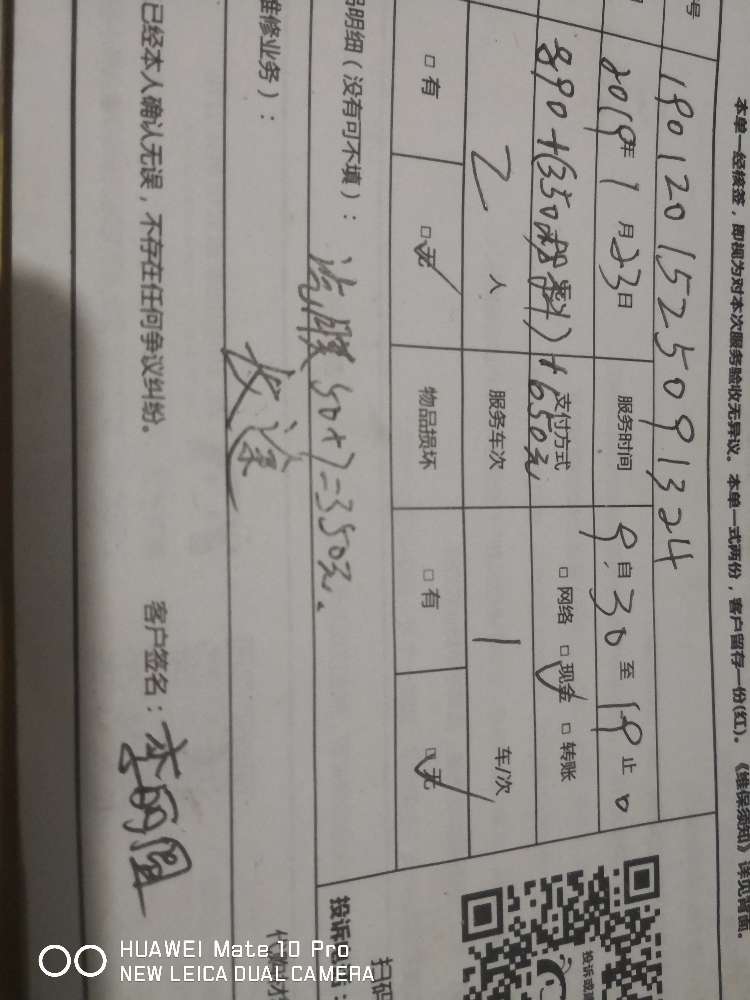 本单一经核签，即视为对本次服务验收无异议。本单一式两份，客户留存一份(红)。《维保须知》详见背面。
号 1901201525091324
2019年 1月23日 服务时间 9:30 自 至 19 止
890+(350 )+650元 支付方式 □网络 □现金 □转账
2 人 服务车次 1 车/次
□有 □无 物品损坏 □有 □无
明细（没有可不填）： 50×7=350元.
维修业务）： 长途
已经本人确认无误，不存在任何争议纠纷。 客户签名：
投诉
扫码
HUAWEI Mate 10 Pro
NEW LEICA DUAL CAMERA